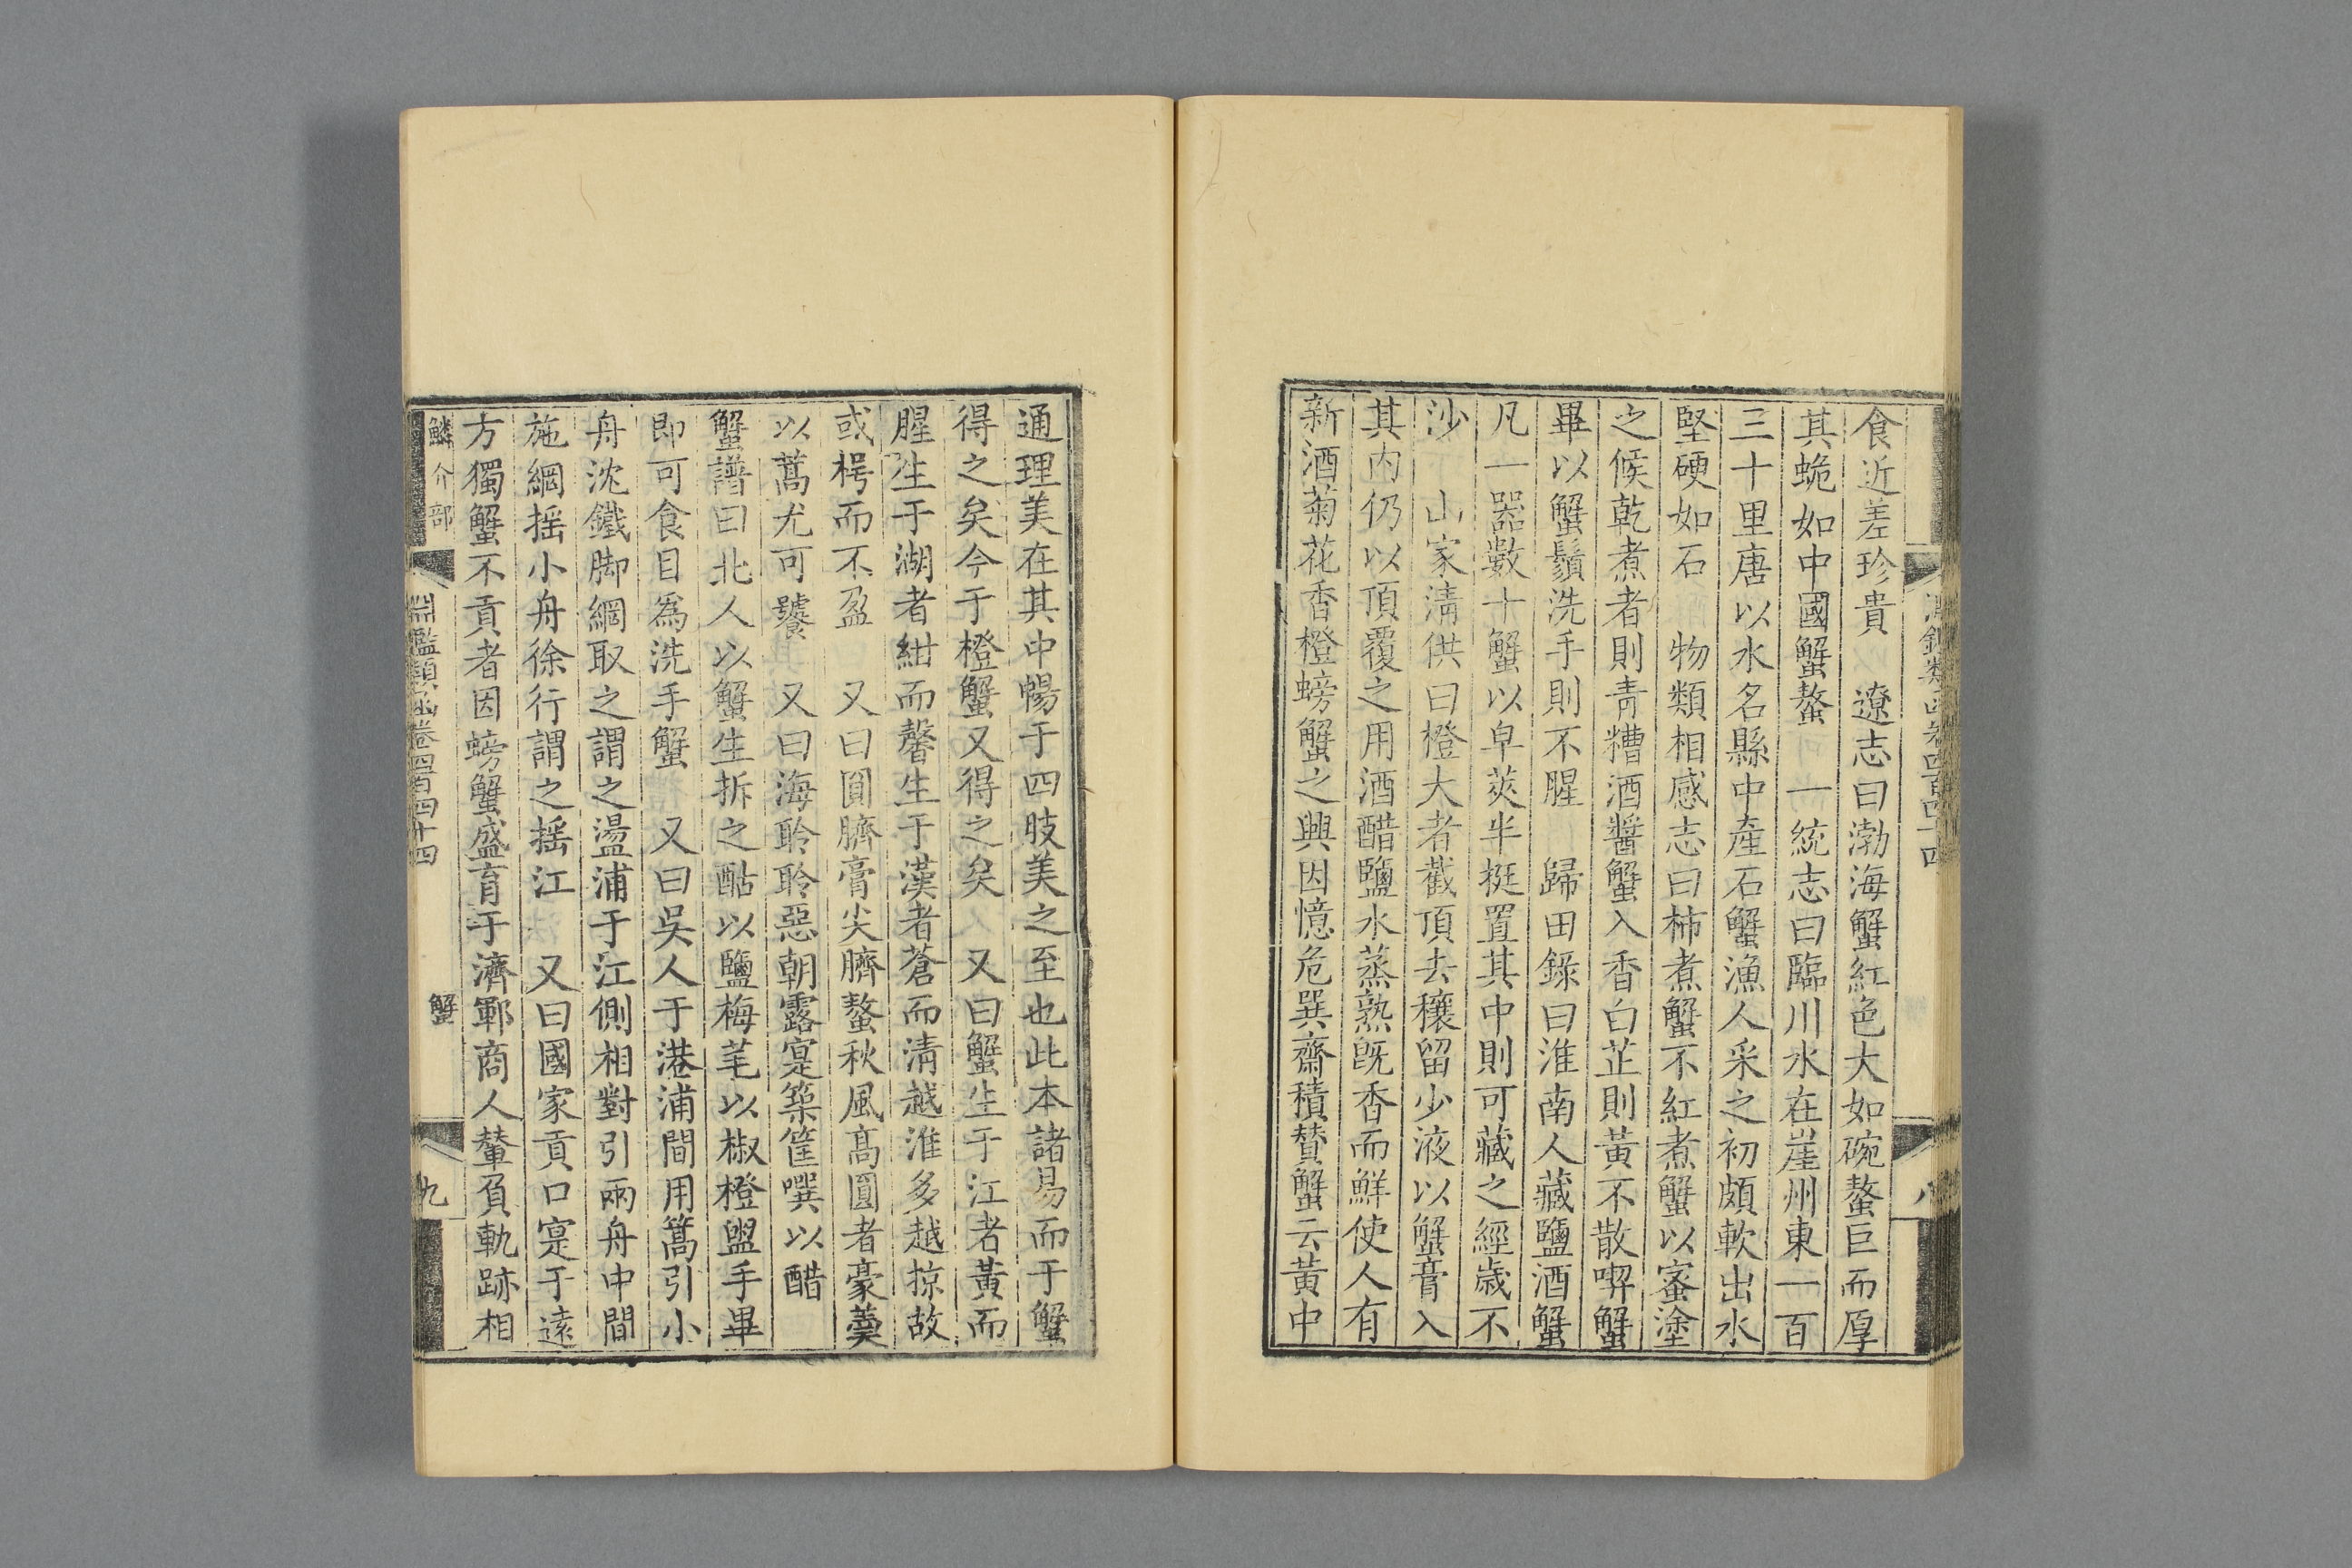 淵鑑類函卷四百四十四
八
食近差珍貴　遼志曰渤海蟹紅色大如碗螯巨而厚
其蛫如中國蟹螯　一統志曰臨川水在崖州東一百
三十里唐以水名縣中產石蟹漁人采之初頗軟出水
堅硬如石　物類相感志曰柿煮蟹不紅煮蟹以蜜塗
之候乾煮者則青糟酒醬蟹入香白芷則黃不散喫蟹
畢以蟹鬚洗手則不腥　歸田錄曰淮南人藏鹽酒蟹
凡一器數十蟹以皁莢半挺置其中則可藏之經歲不
沙　山家清供曰橙大者截頂去穰留少液以蟹膏入
其內仍以頂覆之用酒醋鹽水蒸熟旣香而鮮使人有
新酒菊花香橙螃蟹之興因憶危巽齋積贊蟹云黃中
通理美在其中暢于四肢美之至也此本諸易而于蟹
得之矣今于橙蟹又得之矣　又曰蟹生于江者黃而
腥生于湖者紺而馨生于漢者蒼而清越淮多越掠故
或枵而不盈　又曰圓臍膏尖臍螯秋風高圓者豪羹
以蒿尤可饕　又曰海聆聆惡朝露寔築筐噀以醋
蟹譜曰北人以蟹生拆之酤以鹽梅芼以椒橙盥手畢
即可食目為洗手蟹　又曰吳人于港浦間用篙引小
舟沈鐵脚綱取之謂之盪浦于江側相對引兩舟中間
施綱搖小舟徐行謂之搖江　又曰國家貢口寔于遠
方獨蟹不貢者因螃蟹盛育于濟鄆商人輦負軌跡相
鱗介部
淵鑑類函卷四百四十四
蟹
九